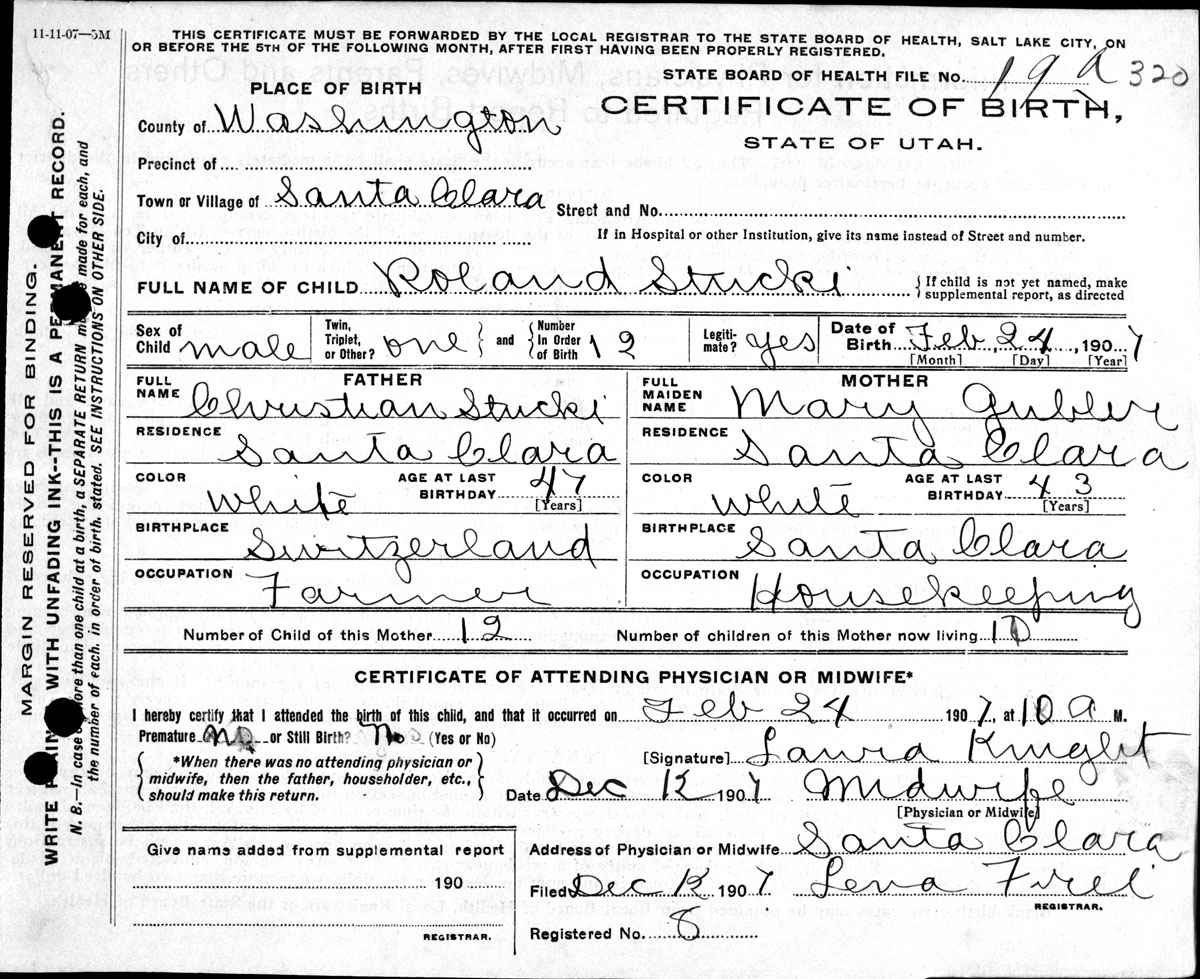 11-11-07—5M
THIS CERTIFICATE MUST BE FORWARDED BY THE LOCAL REGISTRAR TO THE STATE BOARD OF HEALTH, SALT LAKE CITY, ON
OR BEFORE THE 5TH OF THE FOLLOWING MONTH, AFTER FIRST HAVING BEEN PROPERLY REGISTERED.
STATE BOARD OF HEALTH FILE No. 19 a 320
PLACE OF BIRTH
CERTIFICATE OF BIRTH,
STATE OF UTAH.
County of Washington
Precinct of
Town or Village of Santa Clara Street and No.
City of
If in Hospital or other Institution, give its name instead of Street and number.
FULL NAME OF CHILD Roland Stucki { If child is not yet named, make supplemental report, as directed
Sex of Child male Twin, Triplet, or Other? one } and { Number In Order of Birth 12 Legiti-mate? yes Date of Birth Feb 24, 1907
[Month] [Day] [Year]
FATHER
FULL NAME Christian Stucki
RESIDENCE Santa Clara
COLOR White AGE AT LAST BIRTHDAY 47
[Years]
BIRTHPLACE Switzerland
OCCUPATION Farmer
MOTHER
FULL MAIDEN NAME Mary Gubler
RESIDENCE Santa Clara
COLOR White AGE AT LAST BIRTHDAY 43
[Years]
BIRTHPLACE Santa Clara
OCCUPATION Housekeeping
Number of Child of this Mother 12 Number of children of this Mother now living 10
CERTIFICATE OF ATTENDING PHYSICIAN OR MIDWIFE*
I hereby certify that I attended the birth of this child, and that it occurred on Feb 24 1907, at 10 a M.
Premature No or Still Birth? No (Yes or No)
{ *When there was no attending physician or
midwife, then the father, householder, etc.,
should make this return. }
[Signature] Laura Knight
Date Dec 12 1907 Midwife
[Physician or Midwife]
Address of Physician or Midwife Santa Clara
Filed Dec 12 1907 Lena Frei
REGISTRAR.
Registered No. 8
Give name added from supplemental report
190
REGISTRAR.
MARGIN RESERVED FOR BINDING.
WRITE PLAINLY WITH UNFADING INK--THIS IS A PERMANENT RECORD.
N. B.—In case of more than one child at a birth, a SEPARATE RETURN must be made for each, and
the number of each, in order of birth, stated. SEE INSTRUCTIONS ON OTHER SIDE.